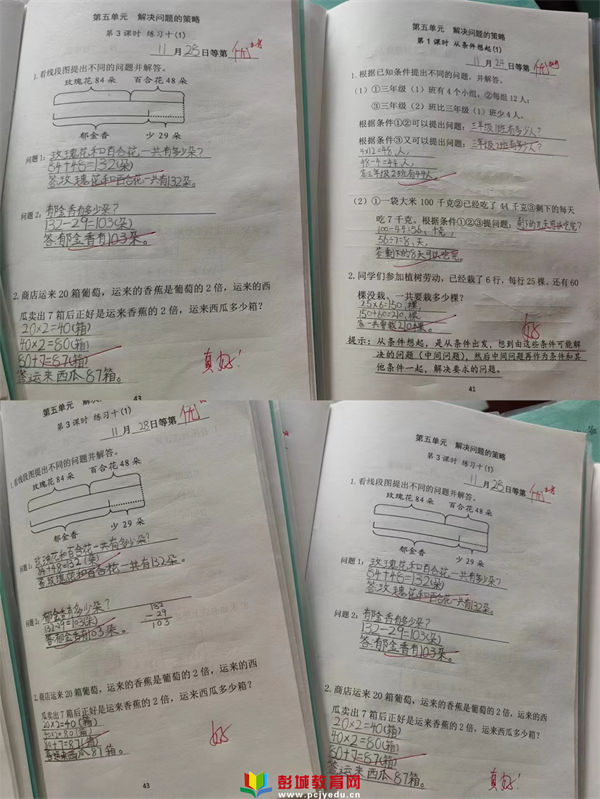 第五单元 解决问题的策略
第3课时 练习十(1)
11月28日等第 优
1.看线段图提出不同的问题并解答。
玫瑰花84朵 百合花48朵
郁金香 少29朵
问题1: 玫瑰花和百合花一共有多少朵?
84+48=132(朵)
答:玫瑰花和百合花一共有132朵。
问题2: 郁金香有多少朵?
132-29=103(朵)
答:郁金香有103朵。
2.商店运来20箱葡萄,运来的香蕉是葡萄的2倍,运来的西
瓜卖出7箱后正好是运来香蕉的2倍,运来西瓜多少箱?
20×2=40(箱)
40×2=80(箱)
80+7=87(箱)
答:运来西瓜87箱。
真好!
43
第五单元 解决问题的策略
第1课时 从条件想起(1)
11月24日等第 优
1.根据已知条件提出不同的问题,并解答。
(1)①三年级(1)班有4个小组,②每组12人;
③三年级(2)班比三年级(1)班少4人。
根据条件①②可以提出问题:三年级1班有多少人?
根据条件③又可以提出问题:三年级2班有多少人?
4×12=48,人,
48-4=44,人,
答:三年级2班有44人。
(2)①一袋大米100千克②已经吃了44千克③剩下的每天
吃7千克。根据条件①②③提问题:
100-44=56,千克,
56÷7=8,天,
答:剩下的8天可以吃完。
2.同学们参加植树劳动,已经栽了6行,每行25棵,还有60
棵没栽。一共要栽多少棵?
25×6=150,棵,
150+60=210,棵,
答:一共要栽210棵。
好
提示:从条件想起,是从条件出发,想到由这些条件可能解
决的问题(中间问题),然后中间问题再作为条件和其
他条件一起,解决要求的问题。
41
第五单元 解决问题的策略
第3课时 练习十(1)
11月28日等第 优
1.看线段图提出不同的问题并解答。
玫瑰花84朵 百合花48朵
郁金香 少29朵
问题1: 玫瑰花和百合花一共有多少朵?
84+48=132(朵)
答:玫瑰花和百合花一共有132朵。
问题2: 郁金香有多少朵?
132-29=103(朵)
答:郁金香有103朵。
132
-29
103
2.商店运来20箱葡萄,运来的香蕉是葡萄的2倍,运来的西
瓜卖出7箱后正好是运来香蕉的2倍,运来西瓜多少箱?
20×2=40(箱)
40×2=80(箱)
80+7=87(箱)
答:运来西瓜87箱。
好
43
第五单元 解决问题的策略
第3课时 练习十(1)
11月28日等第 优
1.看线段图提出不同的问题并解答。
玫瑰花84朵 百合花48朵
郁金香 少29朵
问题1: 玫瑰花和百合花一共有多少朵?
84+48=132(朵)
答:玫瑰花和百合花一共有132朵。
问题2: 郁金香有多少朵?
132-29=103(朵)
答:郁金香有103朵。
2.商店运来20箱葡萄,运来的香蕉是葡萄的2倍,运来的西
瓜卖出7箱后正好是运来香蕉的2倍,运来西瓜多少箱?
20×2=40(箱)
40×2=80(箱)
80+7=87(箱)
答:运来西瓜87箱。
真好!
彭城教育网
www.pcjyedu.cn